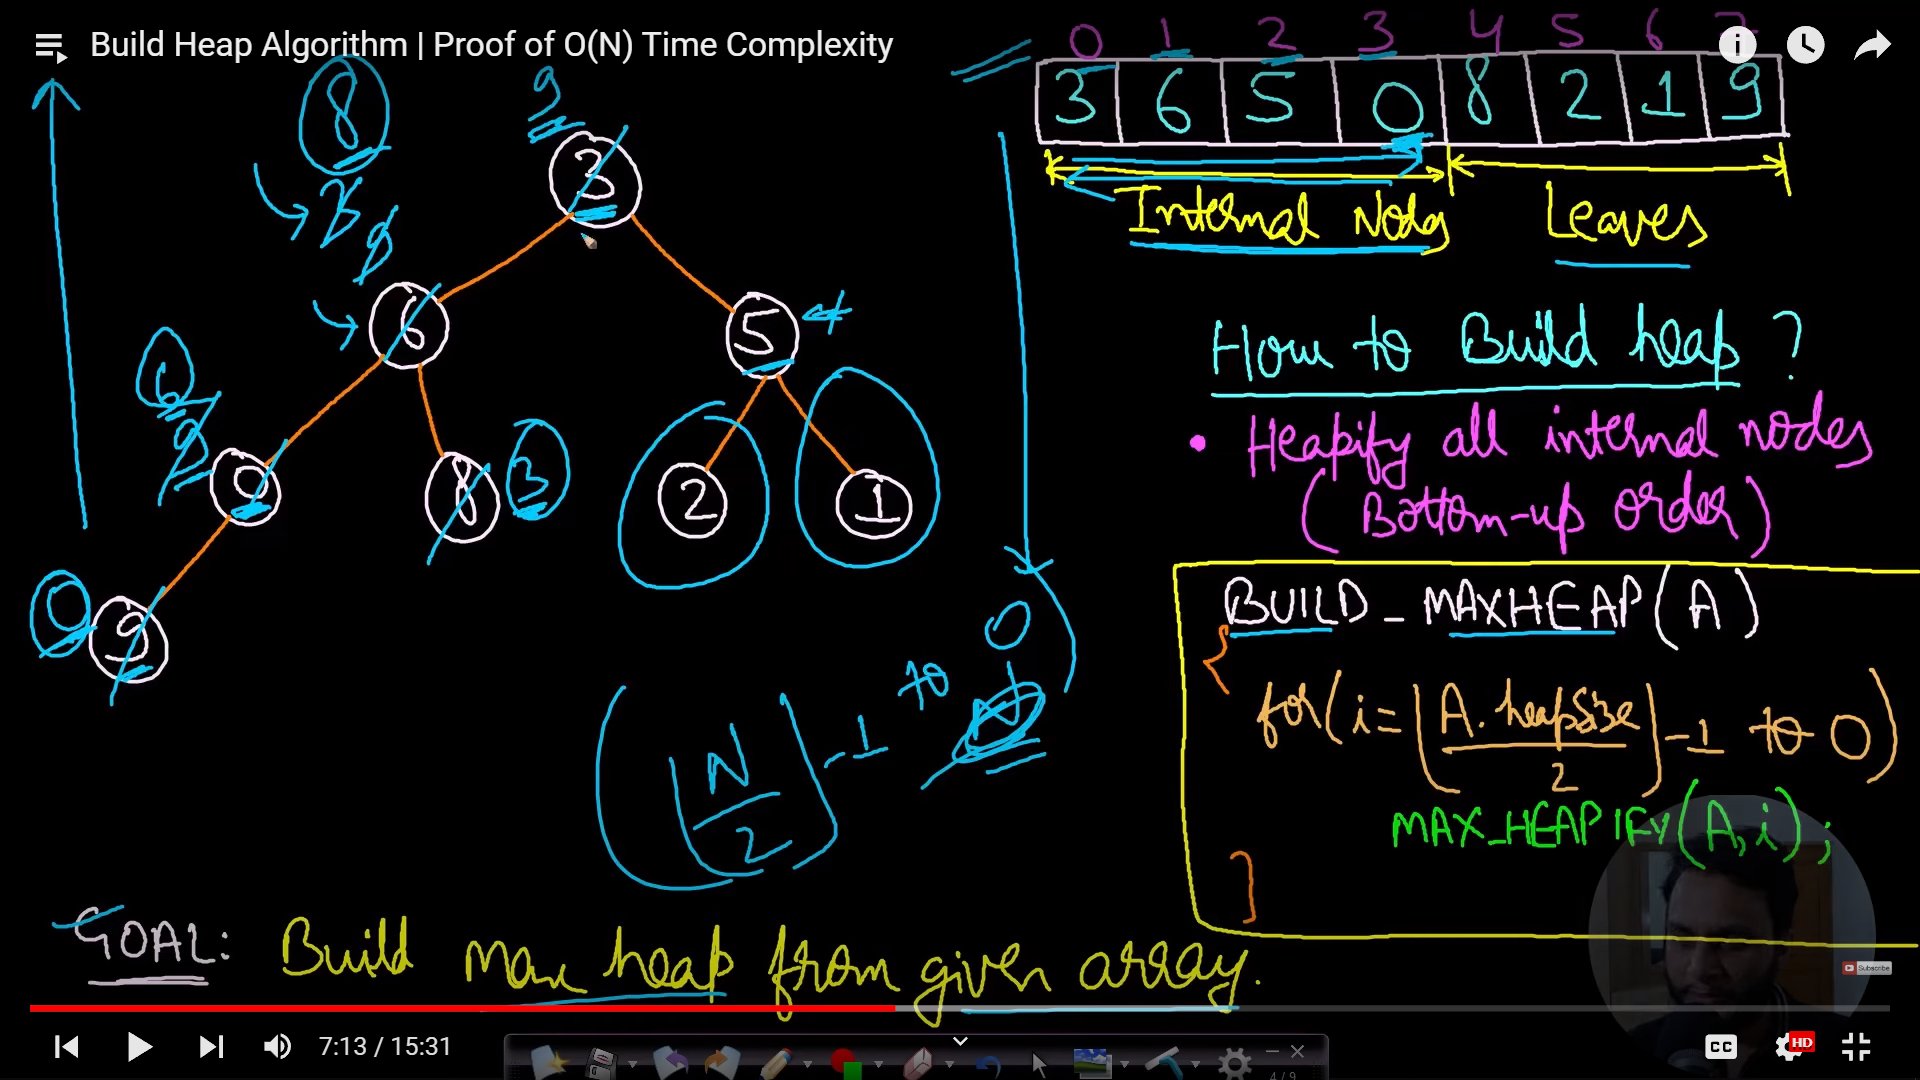 Build Heap Algorithm | Proof of O(N) Time Complexity
0 1 2 3 4 5 6 7
3 6 5 0 8 2 1 9
Internal Nodes
Leaves
8
9
3
3
9
6
5
6
9
0
8
3
2
1
0
9
How to Build heap ?
• Heapify all internal nodes
(Bottom-up order)
BUILD_MAXHEAP(A)
{
for(i=⌊A.heapSize/2⌋-1 to 0)
MAX_HEAPIFY(A,i);
}
(⌊N/2⌋-1 to 0
N
GOAL: Build max heap from given array.
Subscribe
7:13 / 15:31
CC
HD
4/9